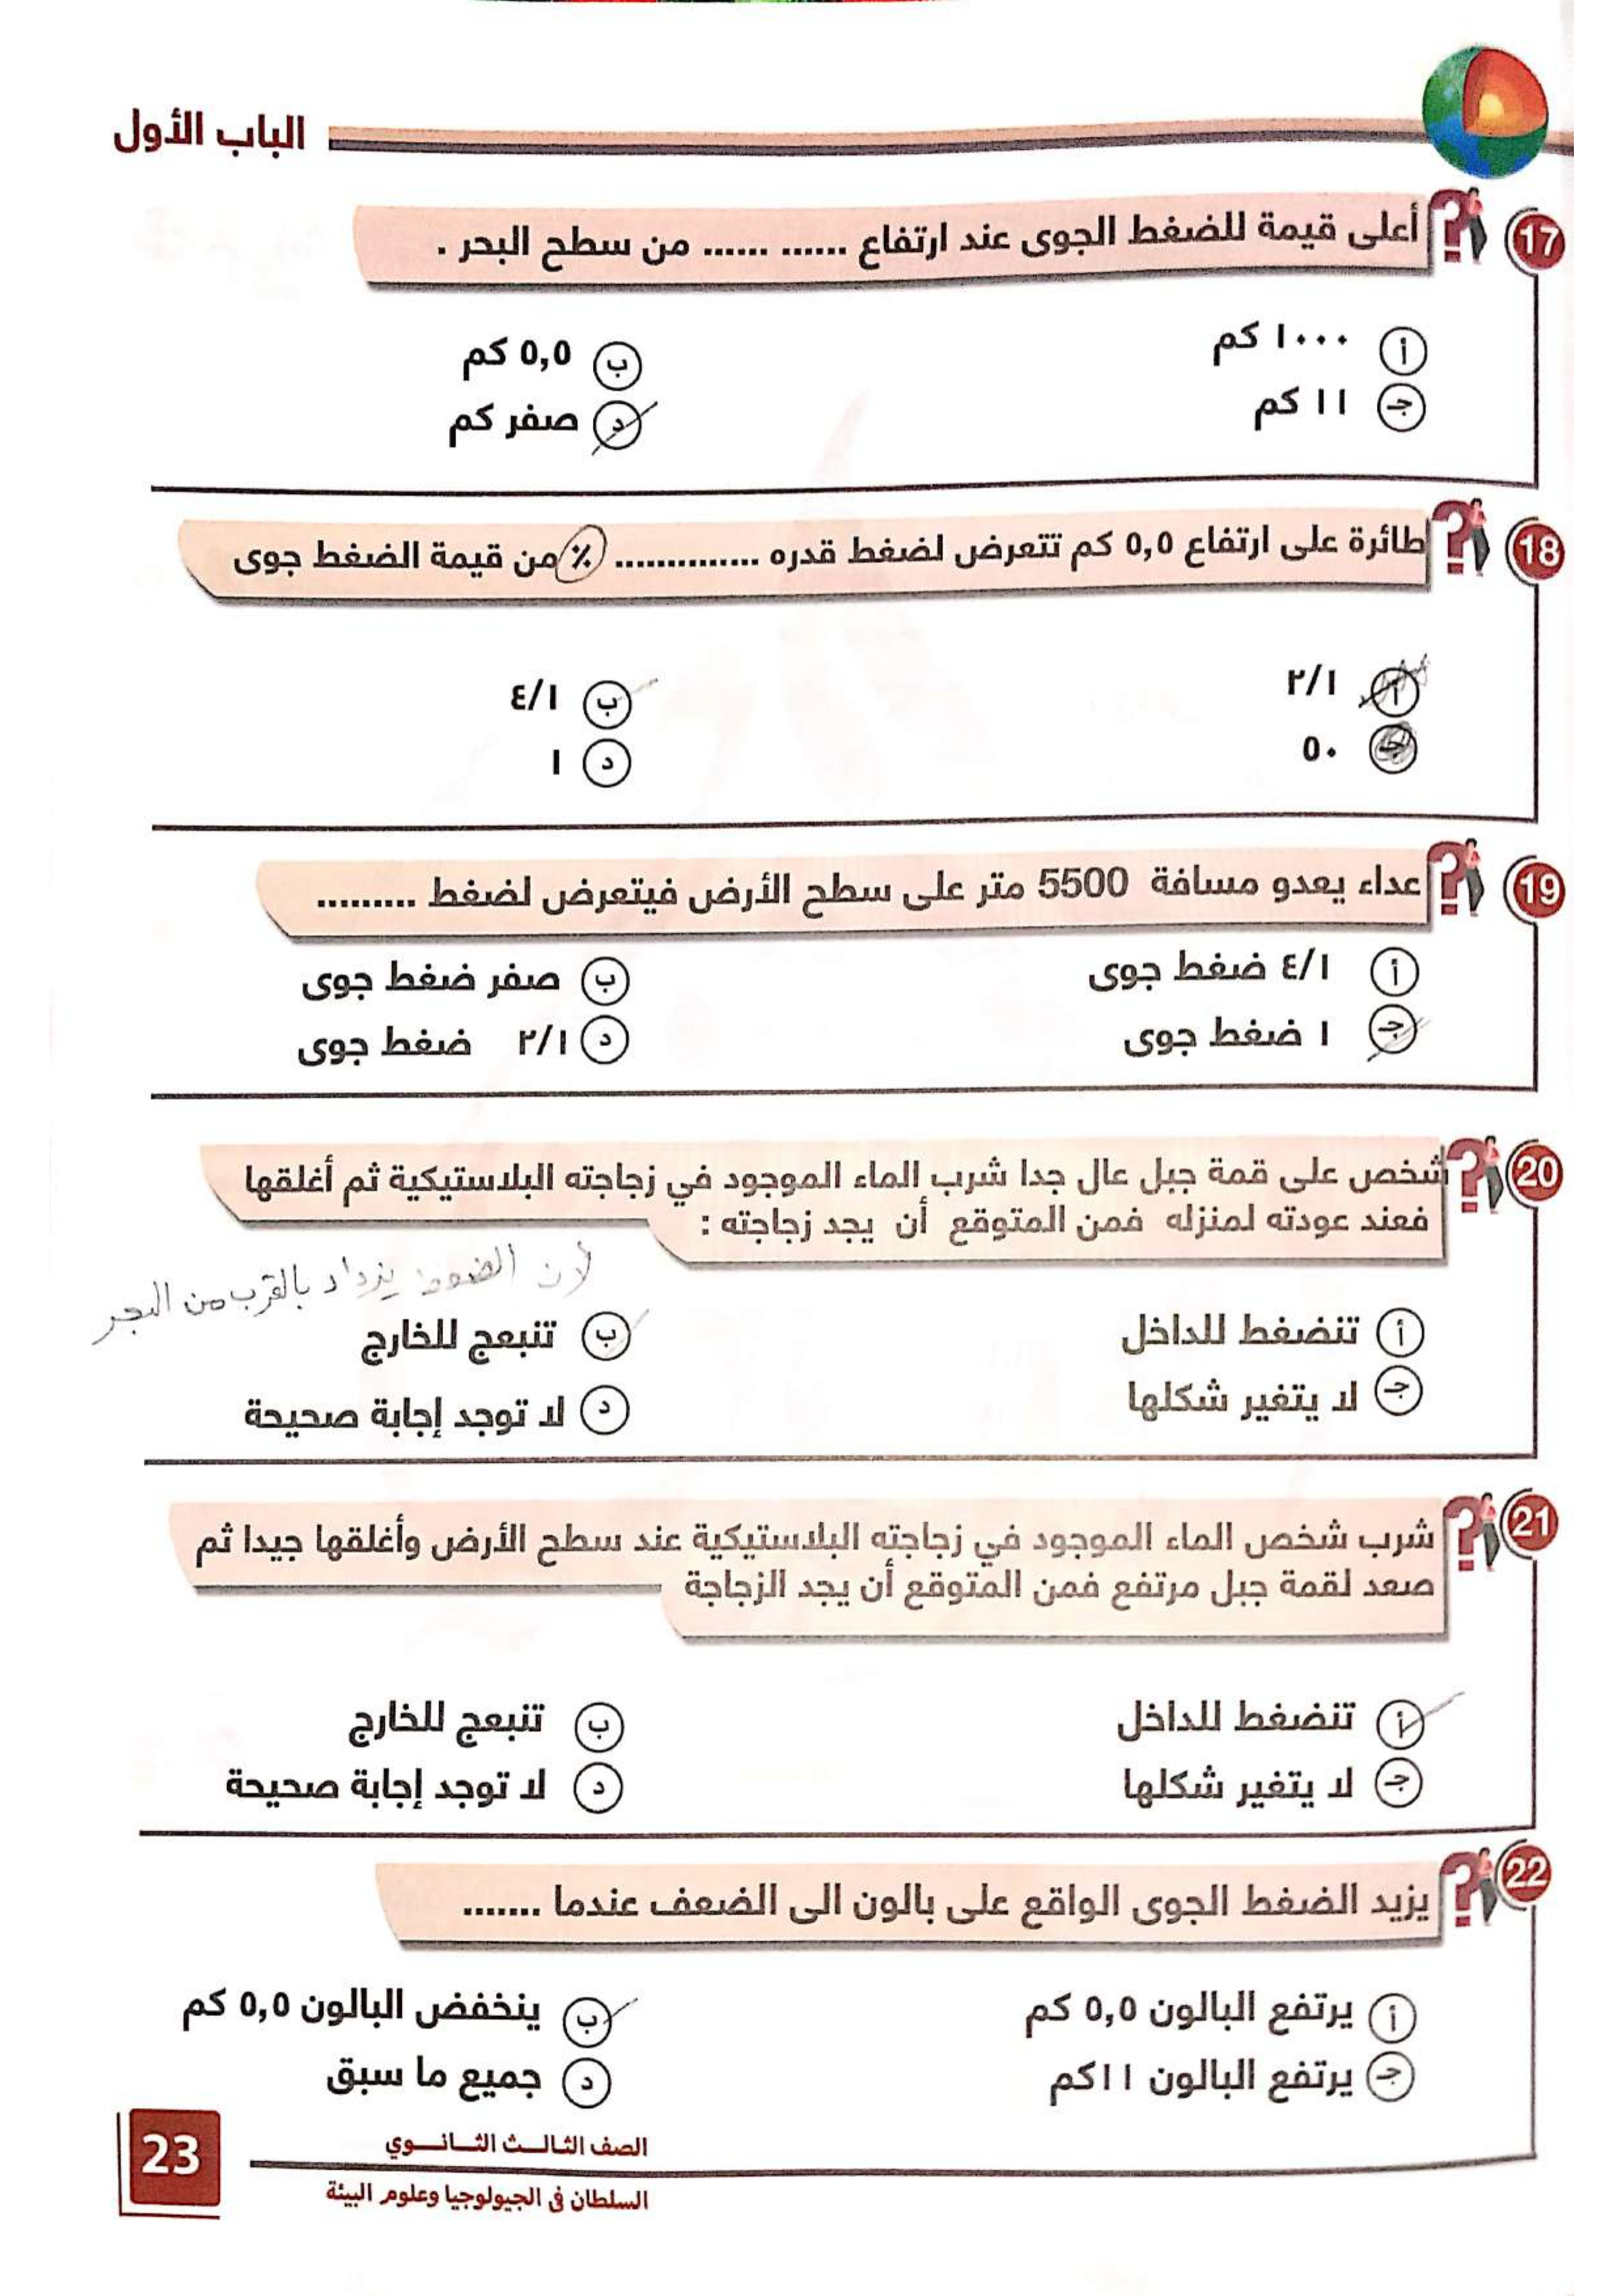 الباب الأول
17 أعلى قيمة للضغط الجوى عند ارتفاع ...... ...... من سطح البحر .
أ ١٠٠٠ كم
ب ٥,٥ كم
جـ ١١ كم
د صفر كم
18 طائرة على ارتفاع ٥,٥ كم تتعرض لضغط قدره .............. ٪ من قيمة الضغط جوى
أ ٢/١
ب ٤/١
جـ ٥٠
د ١
19 عداء يعدو مسافة 5500 متر على سطح الأرض فيتعرض لضغط .........
أ ٤/١ ضغط جوى
ب صفر ضغط جوى
جـ ١ ضغط جوى
د ٢/١ ضغط جوى
20 شخص على قمة جبل عال جدا شرب الماء الموجود في زجاجته البلاستيكية ثم أغلقها
فعند عودته لمنزله فمن المتوقع أن يجد زجاجته :
لان الضغط يزداد بالقرب من البحر
أ تنضغط للداخل
ب تنبعج للخارج
جـ لا يتغير شكلها
د لا توجد إجابة صحيحة
21 شرب شخص الماء الموجود في زجاجته البلاستيكية عند سطح الأرض وأغلقها جيدا ثم
صعد لقمة جبل مرتفع فمن المتوقع أن يجد الزجاجة
أ تنضغط للداخل
ب تنبعج للخارج
جـ لا يتغير شكلها
د لا توجد إجابة صحيحة
22 يزيد الضغط الجوى الواقع على بالون الى الضعف عندما .......
أ يرتفع البالون ٥,٥ كم
ب ينخفض البالون ٥,٥ كم
جـ يرتفع البالون ١١كم
د جميع ما سبق
الصف الثالث الثانوي
23
السلطان فى الجيولوجيا وعلوم البيئة